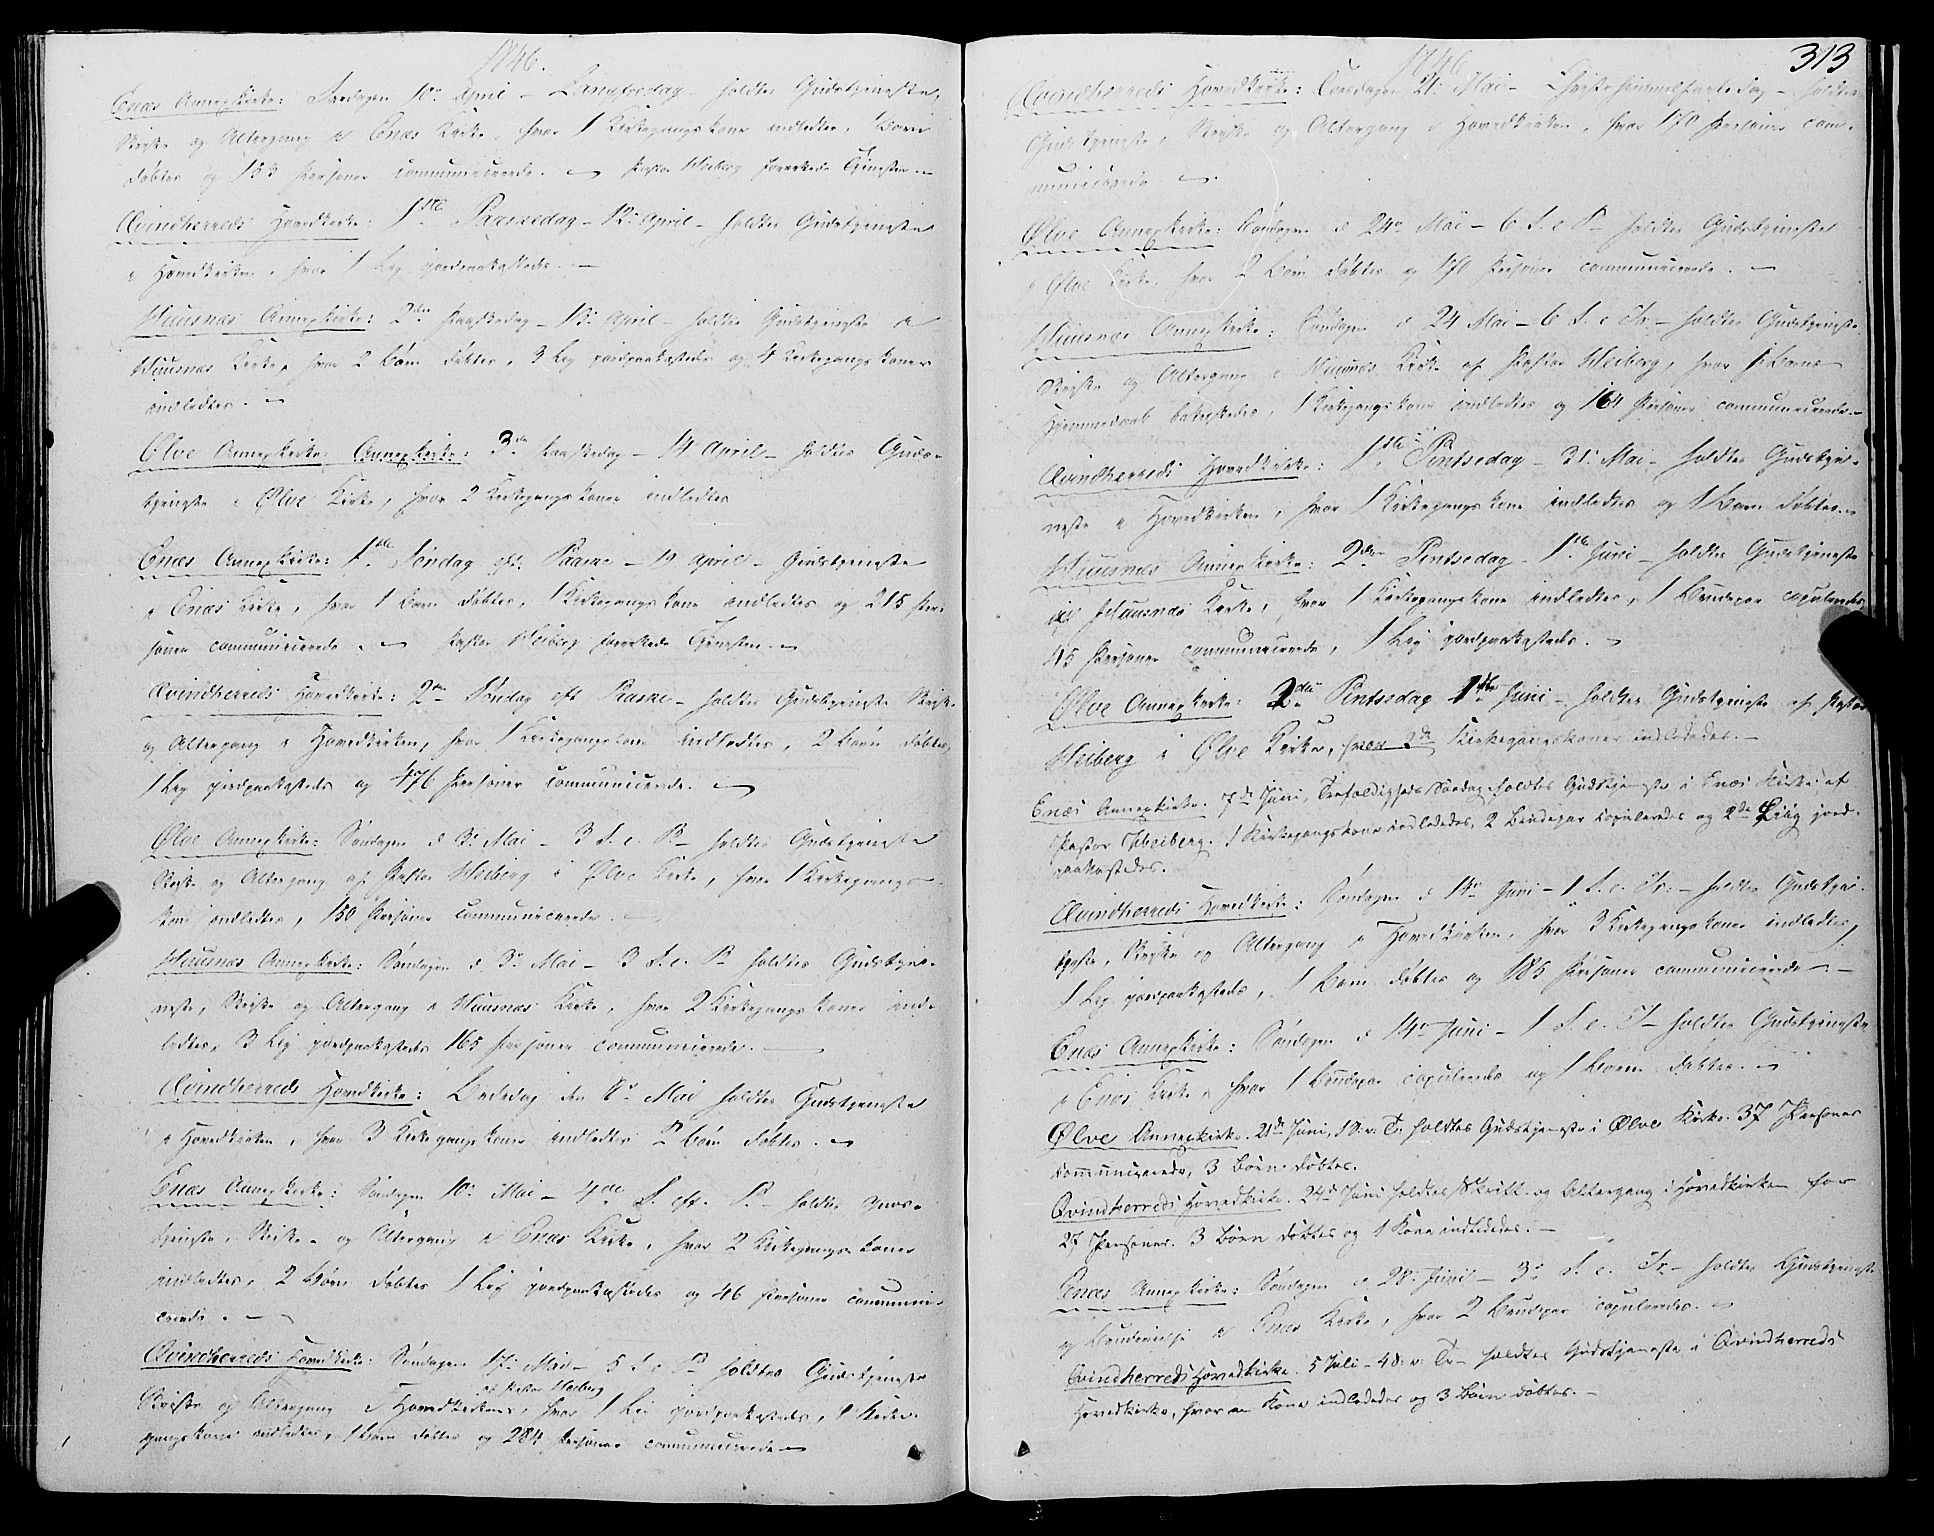 1846.
Enæs Annexkirke: Fredagen 10de April – Langfredag – holdtes Gudstjeneste,
Skrifte og Altergang i Enæs Kirke, hvor 1 Kirkegangskone indledtes, 1 Barn
døbtes og 153 Personer communicerede. – Pastor Heiberg forrettede Tjenesten. –
Qvindherreds Hovedkirke: 1ste Paaskedag – 12 April – holdtes Gudstjeneste
i Hovedkirken, hvor 1 Lig jordpaakastedes. –
Huusnæs Annexkirke: 2den Paaskedag – 13 April – holdtes Gudstjeneste i
Huusnæs Kirke, hvor 2 Børn døbtes, 3 Lig jordpaakastedes og 4 Kirkegangskoner
indledtes. –
Ølve Annexkirke: Annexkirke: 3die Paaskedag – 14 April – holdtes Guds-
tjeneste i Ølve Kirke, hvor 2 Kirkegangskoner indledtes
Enæs Annexkirke: 1ste Søndag eft. Paaske – 19 April – Gudstjeneste
i Enæs Kirke, hvor 1 Barn døbtes, 1 Kirkegangskone indledtes og 215 Per-
soner communicerede. – Pastor Heiberg forrettede Tjenesten. –
Qvindherreds Hovedkirke: 2den Søndag eft Paaske – holdtes Gudstjeneste Skrifte
og Altergang i Hovedkirken, hvor 1 Kirkegangskone indledtes, 2 Børn døbtes,
1 Lig jordpaakastedes og 476 Personer communicerede. –
Ølve Annexkirke: Søndagen d 3 Mai – 3 S. e. P. – holdtes Gudstjeneste
Skrifte og Altergang af Pastor Heiberg i Ølve Kirke, hvor 1 Kirkegangs-
kone indledtes, 150 Personer communicerede. –
Huusnæs Annexkirke: Søndagen d. 3 Mai – 3 S. e. P – holdtes Gudstje-
neste, Skrifte og Altergang i Huusnæs Kirke, hvor 2 Kirkegangskoner ind-
ledtes, 3 Lig jordpaakastedes 165 Personer communicerede. –
Qvindherreds Hovedkirke: Bededag den 8 Mai holdtes Gudstjeneste
i Hovedkirken, hvor 3 Kirkegangskoner indledtes 2 Børn døbtes. –
Enæs Annexkirke: Søndagen 10 Mai – 4de S. eft. P – holdtes Guds-
tjeneste, Skrifte – og Altergang i Enæs Kirke, hvor 2 Kirkegangskoner
indledtes, 2 Børn døbtes 1 Lig jordpaakastedes og 46 Personer communi-
cerede. –
Qvindherreds Hovedkirke: Søndagen 17 Mai – 5 S e P holdtes Gudstjeneste
af Pastor Heiberg
Skrifte og Altergang i Hovedkirken, hvor 1 Lig jordpaakastedes, 1 Kirke-
gangskone indledtes, 1 Barn døbtes og 284 Personer communicerede –
1846
313
Qvindherreds Hovedkirke: Torsdagen 21 Mai – Christi Himmelfartsdag – holdtes
Gudstjeneste, Skrifte og Altergang i Hovedkirken, hvor 170 Personer com-
municerede –.
Ølve Annexkirke: Søndagen d 24 Mai – 6 S. e P – holdtes Gudstjeneste
i Ølve Kirke, hvor 2 Børn døbtes og 170 Personer communicerede. –
Huusnæs Annexkirke: Søndagen d 24 Mai – 6 S. e – holdtes Gudstjeneste
Skrifte og Altergang i Huusnæs Kirke af Pastor Heiberg, hvor 1 Barns
Hjemmedaab bekræftedes, 1 Kirkegangskone indledtes og 164 Personer communicerede. –
Qvindherreds Hovedkirke: 1ste Pintsedag – 31 Mai – holdtes Gudstje-
neste i Hovedkirken, hvor 1 Kirkegangskone indledtes og 1 Barn døbtes. –
Huusnæs Annexkirke: 2den Pintsedag – 1ste Juni – holdtes Gudstjeneste
i Huusnæs Kirke, hvor 1 Kirkegangskone indledtes, 1 Brudepar copuleredes
45 Personer communicerede, 1 Lig jordpaakastedes. –
Ølve Annexkirke: 2den Pintsedag 1ste Juni – holdtes Gudstjeneste af Pastor
Heiberg i Ølve Kirke, hvor 2de Kirkegangskoner indlededes. –
Enæs Annexkirke. 7de Juni, Trefoldigheds Søndag holdtes Gudstjeneste i Enæs Kirke af
Pastor Heiberg. 1 Kirkegangskone indlededes, 2 Brudepar copuleredes og 2de Liig jord-
paakastedes.
Qvindherreds Hovedkirke: Søndagen d 14 Juni – 1 S. e. Tr. – holdtes Gudstje-
neste, Skrifte og Altergang i Hovedkirken, hvor 3 Kirkegangskoner indledtes,
1 Lig jordpaakastedes, 1 Barn døbtes og 185 Personer communicerede –
Enæs Annexkirke: Søndagen d 14 Juni – 1 S. e. T – holdtes Gudstjeneste
i Enæs Kirke, hvor 1 Brudepar copuleredes og 1 Barn døbtes. –
Ølve Annexkirke. 21de Juni, holdtes Gudstjeneste i Ølve Kirke. 37 Personer
kommunicerede, 3 Børn døbtes.
Qvindherreds Hovedkirke. 24de Juni holdtes Skrift. og Altergang i Hovedkirken for
27 Personer. 3 Børn døbtes og 1 Kone indlededes. –
Enæs Annexkirke: Søndagen d 28 Juni – 3 S. e. Tr – holdtes Gudstjeneste
og Brudevielse i Enæs Kirke, hvor 2 Brudepar copuleredes. –
Qvindherreds Hovedkirke. 5 Juli – 4 S. e. Tr – holdtes Gudstjeneste i Qvindherreds
Hovedkirke, hvor en Kone indlededes og 3 Børn døbtes. –